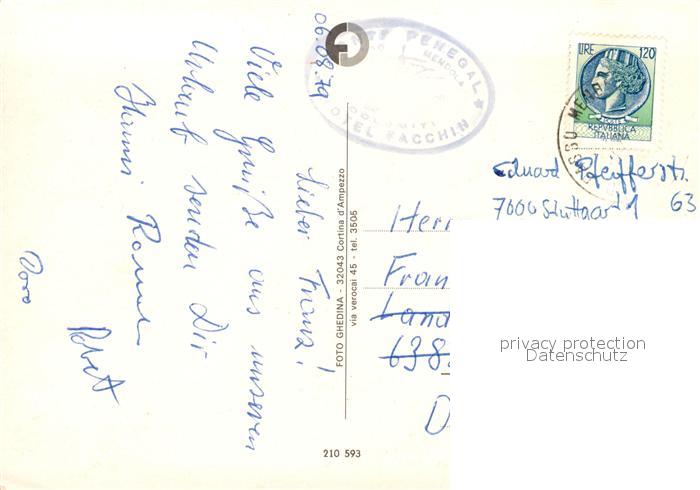 06.08.79
Lieber Franz!
Viele Grüße aus unserem
Urlaub senden Dir
Robert
Doro
MONTE PENEGAL
MENDOLA
DOLOMITI
HOTEL FACCHIN
FOTO GHEDINA - 32043 Cortina d'Ampezzo
via verocai 45 - tel. 3505
210 593
LIRE 120
REPVBBLICA
ITALIANA
Eduard Pfeifferstr.
7000 Stuttgart 1 63
Herr
Fran
Land
638
D
privacy protection
Datenschutz